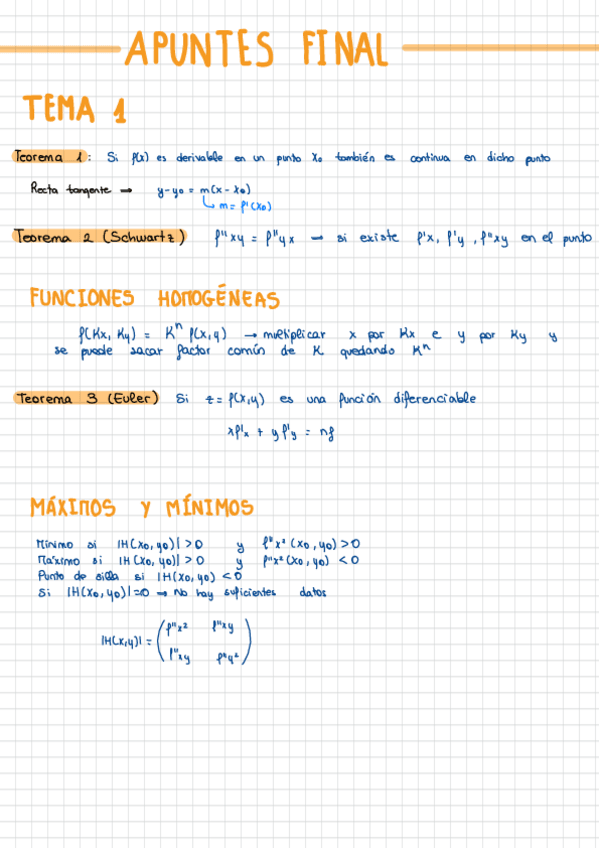 APUNTES FINAL
TEMA 1
Teorema 1: Si f(x) es derivable en un punto x₀ también es continua en dicho punto
Recta tangente → y-y₀ = m(x-x₀)
m = f'(x₀)
Teorema 2 (Schwartz) f''xy = f''yx → si existe f'x, f'y, f''xy en el punto
FUNCIONES HOMOGÉNEAS
f(Kx, Ky) = Kⁿ f(x,y) → multiplicar x por Kx e y por Ky y
se puede sacar factor común de K quedando Kⁿ
Teorema 3 (Euler) Si z = f(x,y) es una función diferenciable
xf'x + yf'y = nf
MÁXIMOS Y MÍNIMOS
Mínimo si |H(x₀,y₀)| > 0 y f''x² (x₀,y₀) > 0
Máximo si |H(x₀,y₀)| > 0 y f''x² (x₀,y₀) < 0
Punto de silla si |H(x₀,y₀) < 0
Si |H(x₀,y₀)| = 0 → No hay suficientes datos
f''x² f''xy
|H(x,y)| =
f''xy f''y²